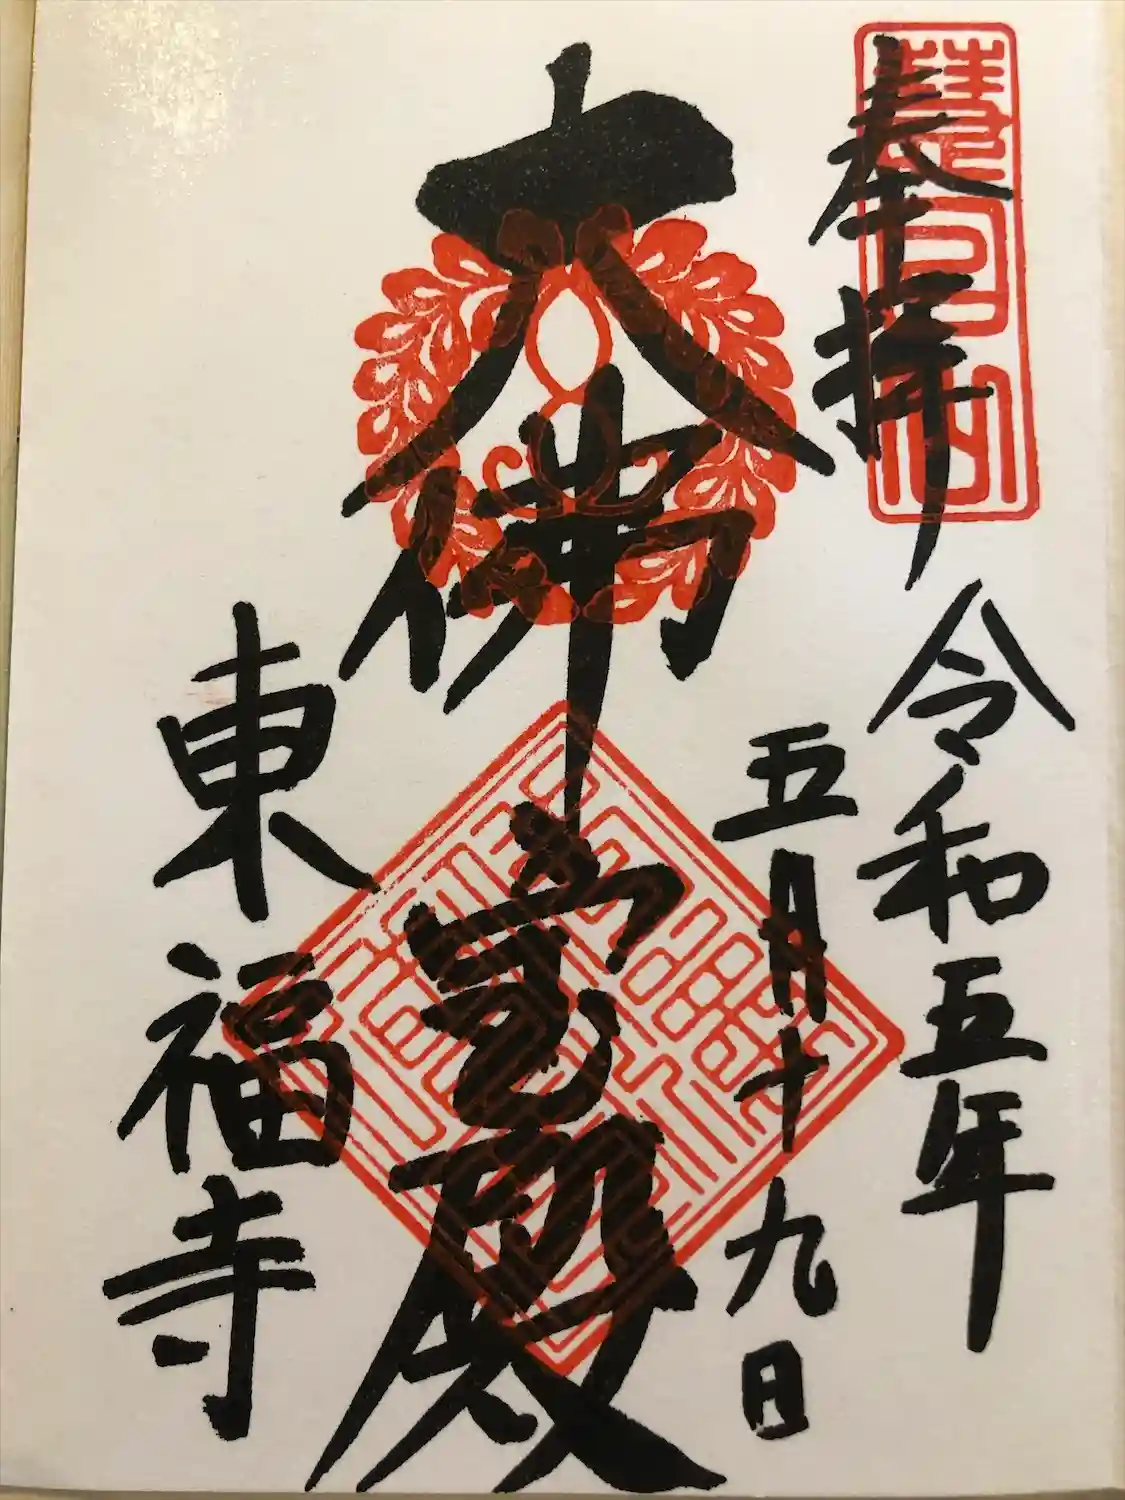 奉拝
令和五年
五月十九日
大佛宝殿
東福寺
慧日山